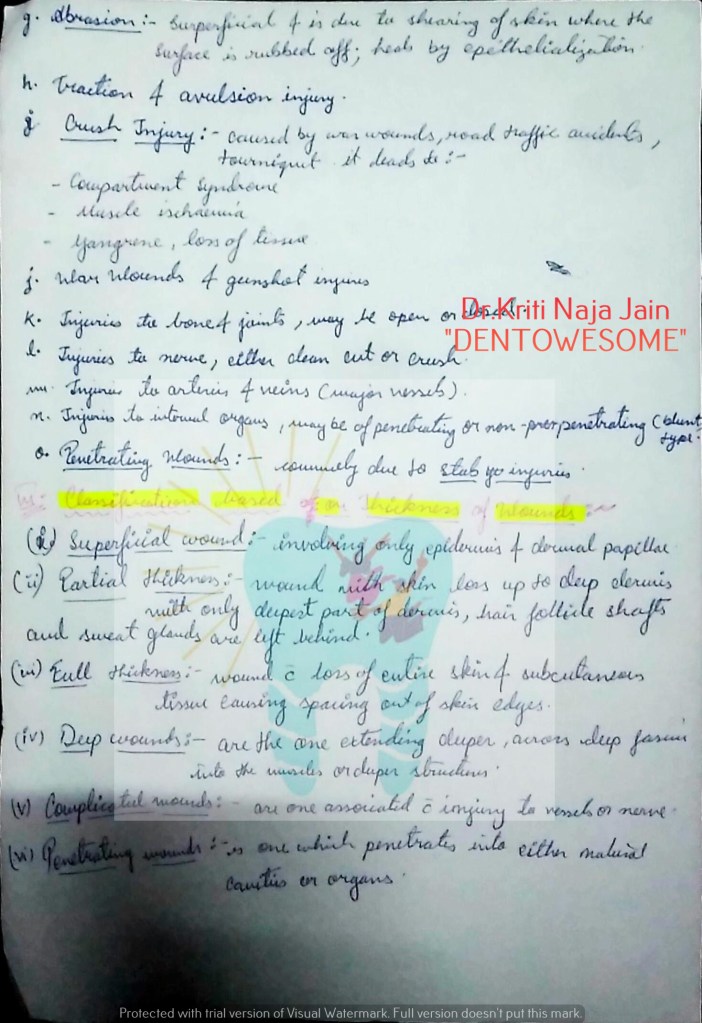 g. Abrasion :- Surperficial & is due to shearing of skin where the
surface is rubbed off; heals by epithelialization.
h. Traction & avulsion injury.
i. Crush Injury :- caused by war wounds, road traffic accidents,
tourniquet it leads to :-
- Compartment Syndrome
- Muscle ischaemia
- Gangrene, loss of tissue
j. War Wounds & gunshot injuries
k. Injuries to bone & joints, may be open or closed.
Dr.Kriti Naja Jain
"DENTOWESOME"
l. Injuries to nerve, either clean cut or crush.
m. Injuries to arteries & veins (major vessels).
n. Injuries to internal organs, may be of penetrating or non-penetrating (blunt
type.
o. Penetrating Wounds :- commonly due to stab injuries.
Classification based on Thickness of Wounds :-
(i) Superficial wound :- involving only epidermis & dermal papillae.
(ii) Partial thickness :- wound with skin loss up to deep dermis
with only deepest part of dermis, hair follicle shafts
and sweat glands are left behind.
(iii) Full thickness :- wound c̄ loss of entire skin & subcutaneous
tissue causing spacing out of skin edges.
(iv) Deep wounds :- are the one extending deeper, across deep fascia
into the muscles or deeper structures.
(v) Complicated wounds :- are one associated c̄ injury to vessels or nerve.
(vi) Penetrating wounds :- is one which penetrates into either natural
cavities or organs.
Protected with trial version of Visual Watermark. Full version doesn't put this mark.